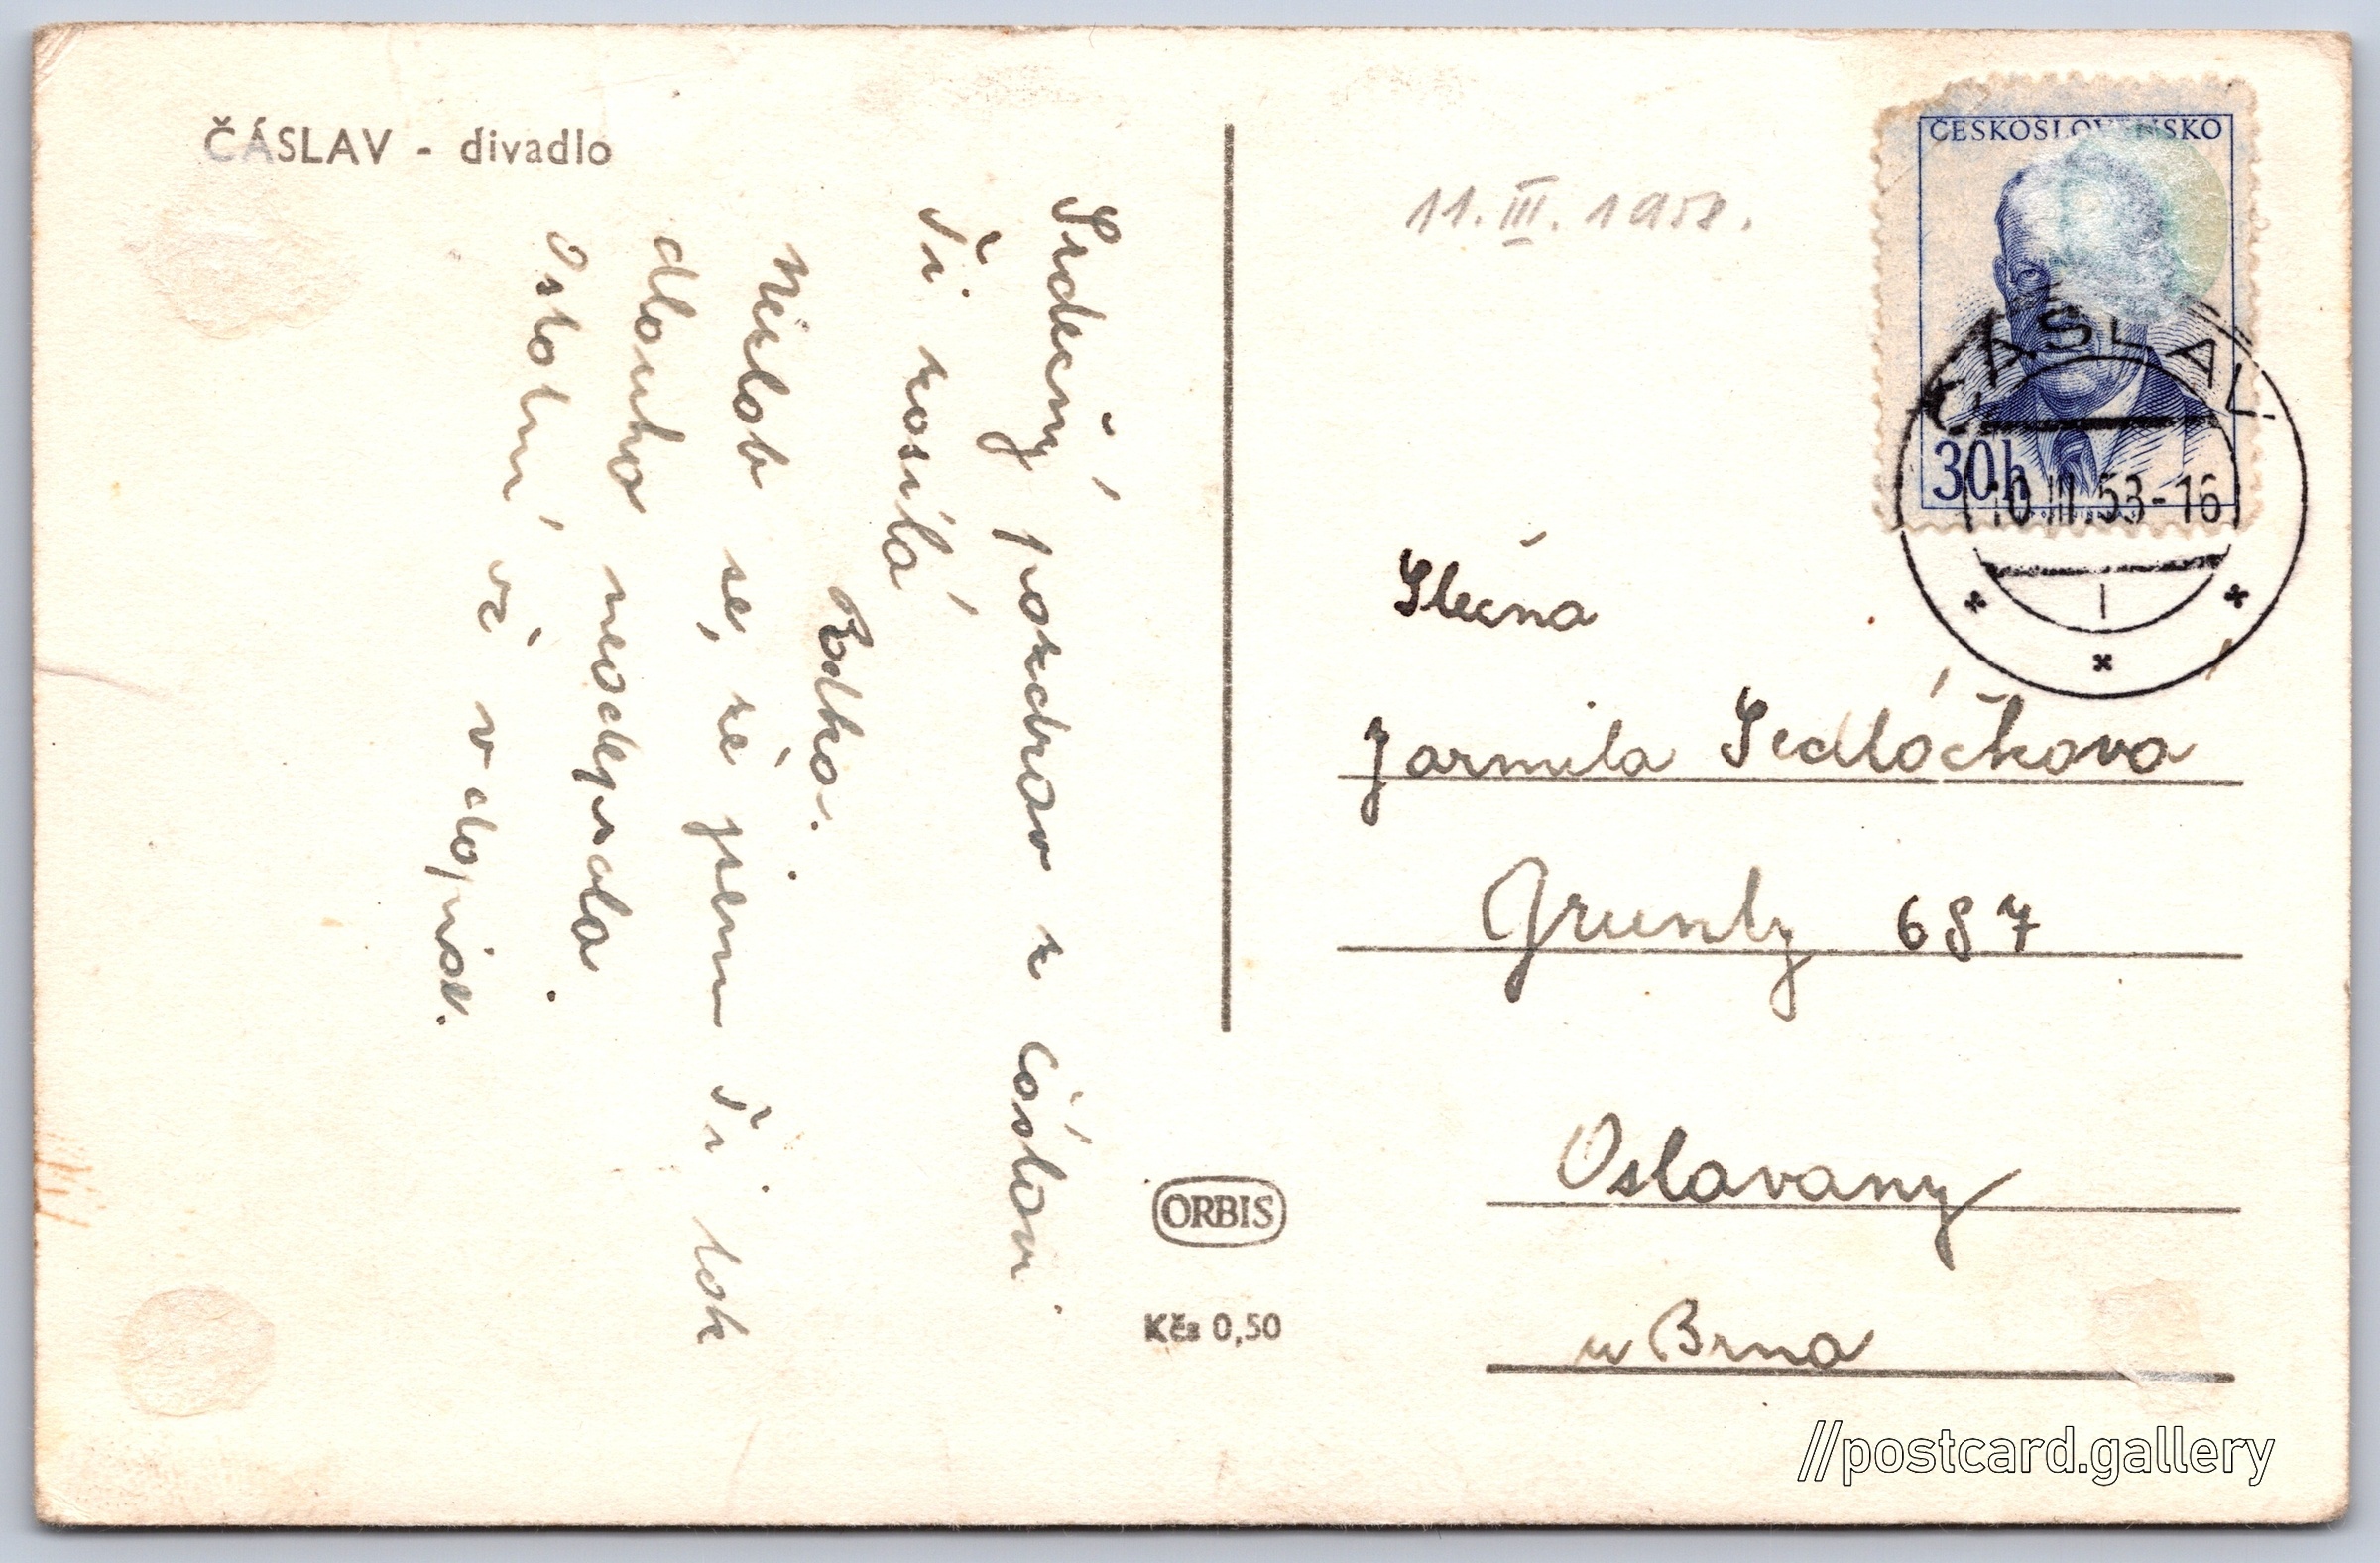 ČÁSLAV - divadlo
Srdečný pozdrav z Čáslavi
Ti zasílá
Radka.
Nezlob se, že jsem Ti tak
dlouho neodepsala.
Ostatní až v dopise.
11. III. 1953.
ČESKOSLOVENSKO
30h
ČÁSLAV
10.III.53-16
1
Slečna
Jarmila Sedláčková
Grunty 687
Oslavany
u Brna
ORBIS
Kčs 0,50
//postcard.gallery